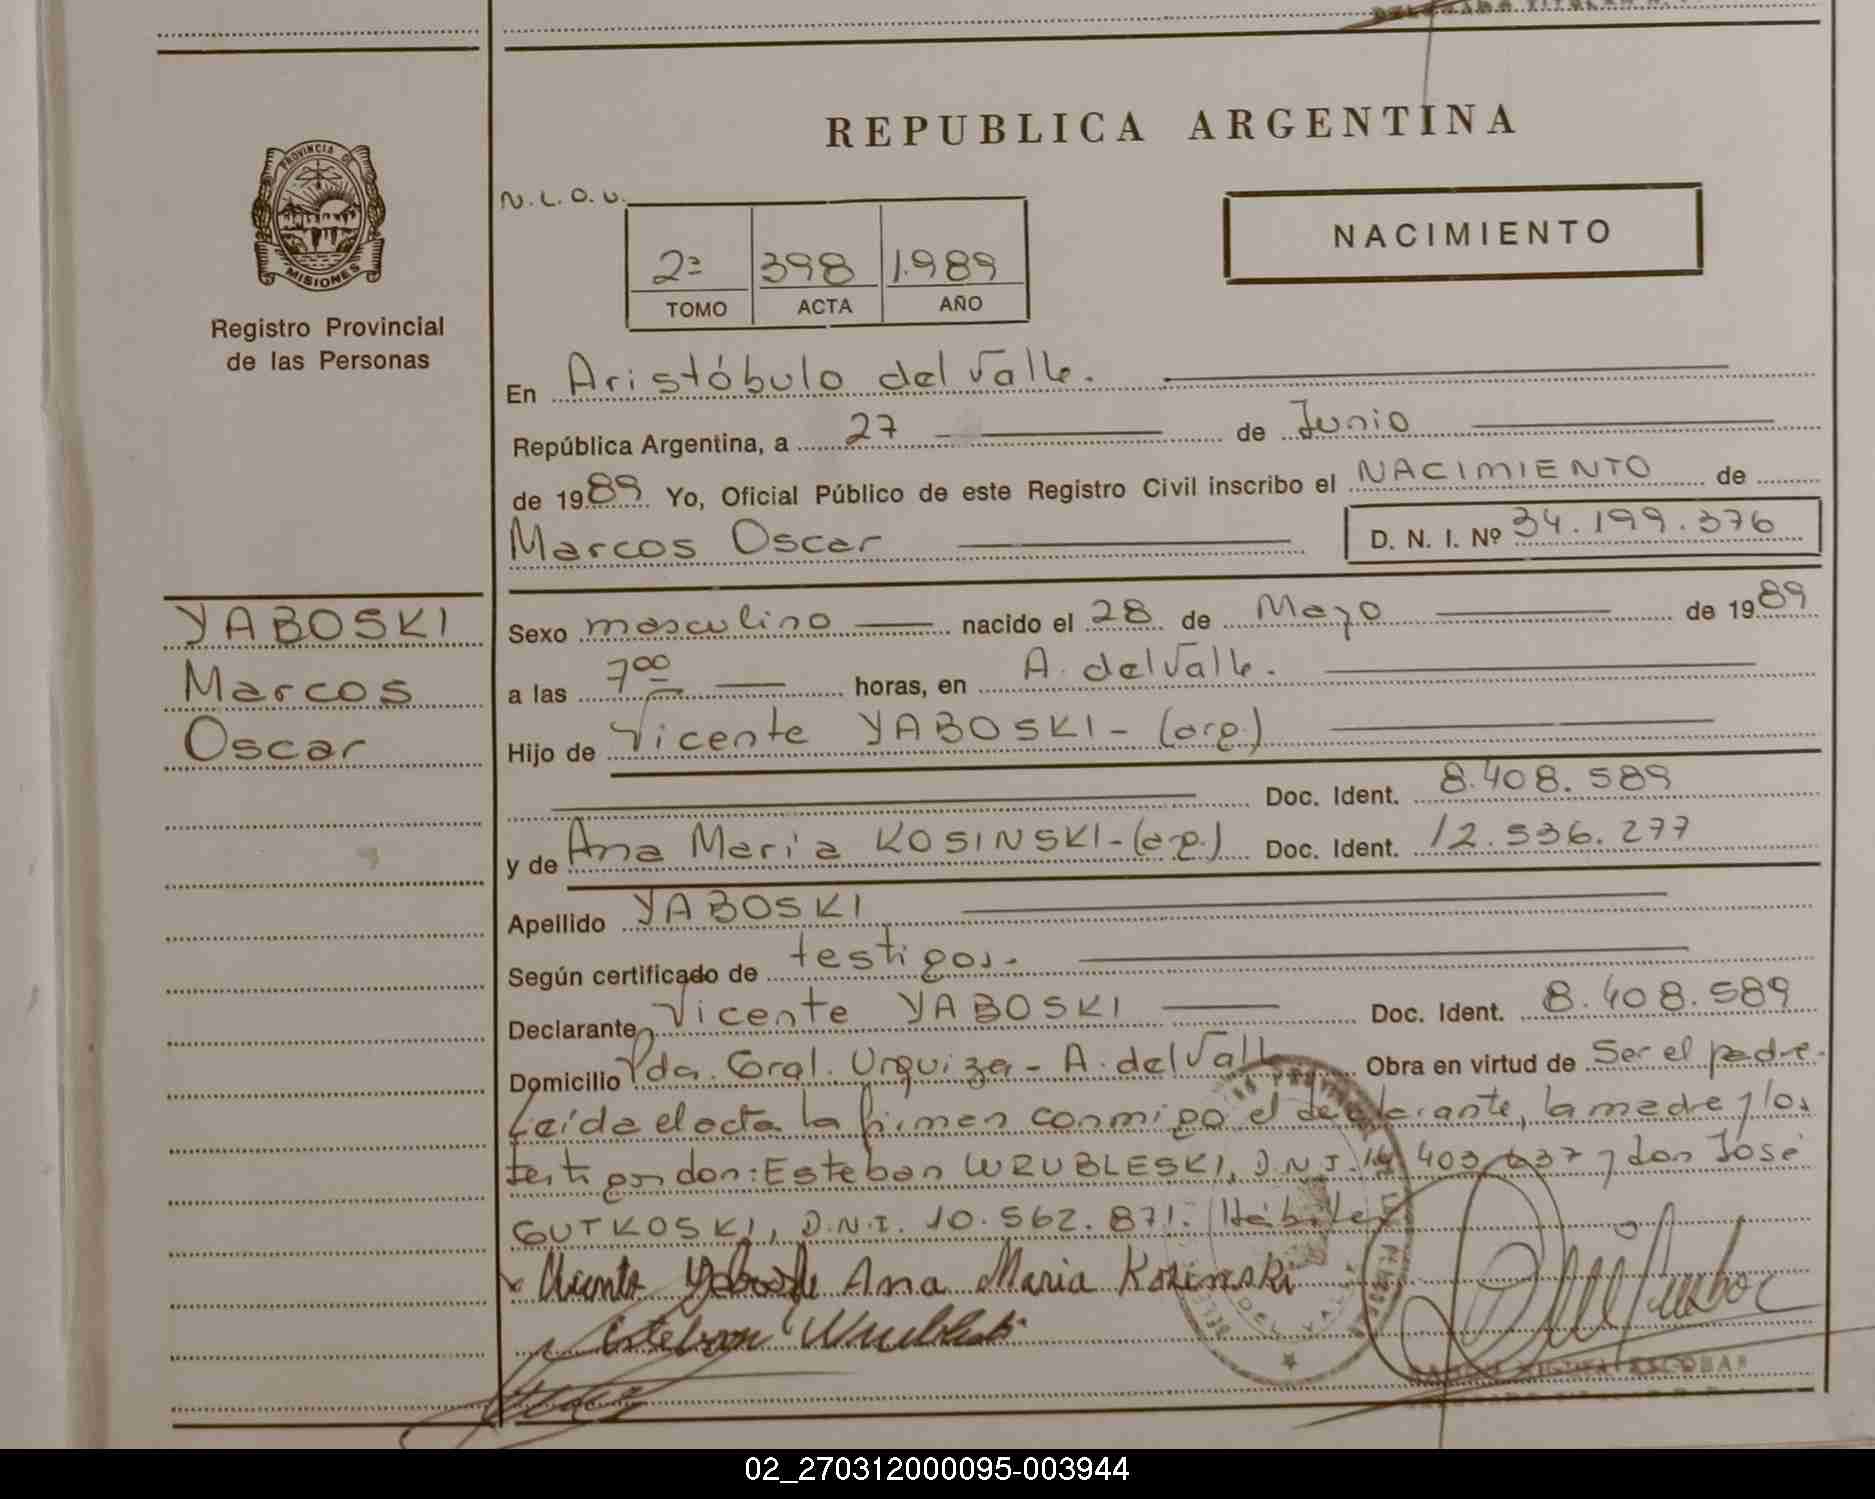 REPUBLICA ARGENTINA
PROVINCIA DE
MISIONES
Registro Provincial
de las Personas
N.L.O.U.
2ª 398 1.989
TOMO ACTA AÑO
NACIMIENTO
En Aristóbulo del Valle.
República Argentina, a 27 de Junio
de 1989 Yo, Oficial Público de este Registro Civil inscribo el NACIMIENTO de
Marcos Oscar D. N. I. Nº 34.199.376
YABOSKI
Marcos
Oscar
Sexo masculino nacido el 28 de Mayo de 1989
a las 7⁰⁰ horas, en A. del Valle.
Hijo de Vicente YABOSKI - (arg.)
Doc. Ident. 8.408.589
y de Ana Maria KOSINSKI - (arg.) Doc. Ident. 12.536.277
Apellido YABOSKI
Según certificado de testigos.
Declarante Vicente YABOSKI Doc. Ident. 8.408.589
Domicilio Pda. Gral. Urquiza - A. del Valle Obra en virtud de Ser el padre.
Leída el acta la firman conmigo el declarante, la madre y los
testigos don: Esteban WRUBLESKI, D.N.I. 14.403.637 y don José
GUTKOSKI, D.N.I. 10.562.871. Hábiles
Ana Maria Kozinski
Esteban
ESCOBAR
02_270312000095-003944